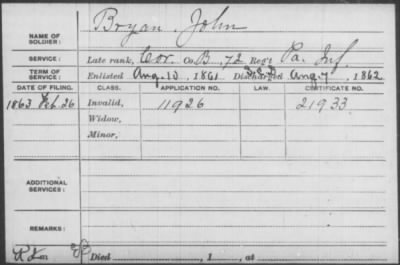 Bryan, John
NAME OF
SOLDIER:
SERVICE: Late rank, Cor. Co. B, 72 Reg't Pa. Inf.
TERM OF
SERVICE: Enlisted Aug. 10, 1861 Discharged Aug. 7, 1862
DATE OF FILING. CLASS. APPLICATION NO. LAW. CERTIFICATE NO.
1863 Feb. 26 Invalid, 11926 21933
Widow,
Minor,
ADDITIONAL
SERVICES:
REMARKS:
Died , 1 , at